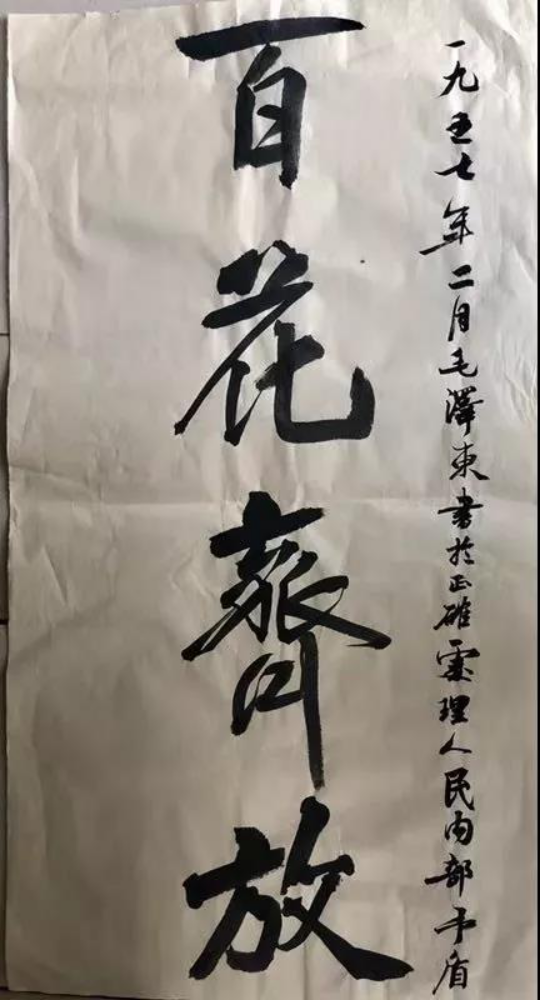 一九五七年二月毛澤東書於正確處理人民内部矛盾
百花齊放